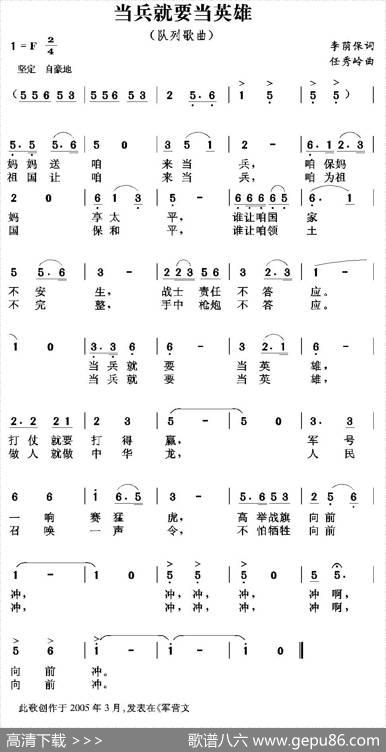 当兵就要当英雄
（队列歌曲）
1=F 2/4
李荫保词
坚定 自豪地
任秀岭曲
（5 5 6 5 3 | 5 5 6 5 3 | 2 5·6 | 1 5 | 5 5）|
5·5 5·6 | 5 0 | 3·5 1 | 2 - | 6·1 2·3 |
妈妈送 咱 来当 兵， 咱保妈
祖国让 咱 来当 兵， 咱为祖
2 0 | 6 1 3 | 5 - | 6 6 6 6 5 | 6· 1 |
妈 享太 平， 谁让咱国 家
国 保和 平， 谁让咱领 土
5 5·6 | 3 - | 2 2 3 5 5 | 2·3 2·3 | 1 - |
不安 生， 战士责任 不答 应。
不完 整， 手中枪炮 不答 应。
1 0 | 3·3 6 | 5 - | 3 2·1 | 6 - |
当兵就 要 当英 雄，
当兵就 要 当英 雄，
2·2 2 1 | 2 3 | 5 - | 5 0 | 3· 3 |
打仗就要 打得 赢， 军号
做人就做 中华 龙， 人民
6 6 | 1 6·5 | 3 - | 5·6 5 3 | 2 5 |
一响 赛猛 虎， 高举战旗 向前
召唤 一声 令， 不怕牺牲 向前
1 - | 1 0 | 5 5 | 5 0 | 5 5· |
冲， 冲，冲， 冲啊，
冲， 冲，冲， 冲啊，
5 6 | 1 - | 1 - | 1 0 ‖
向前 冲。
向前 冲。
此歌创作于2005年3月,发表在《军营文
高清下载 >>>
歌谱八六 www.gepu86.com